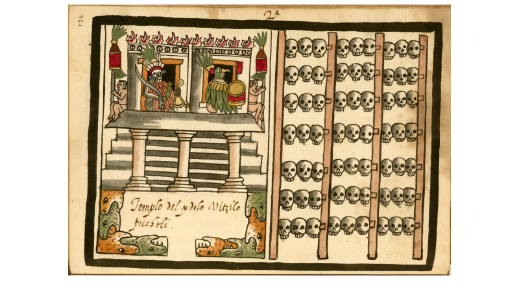 2ª
Templo del ydolo Vitzilo
puctli.